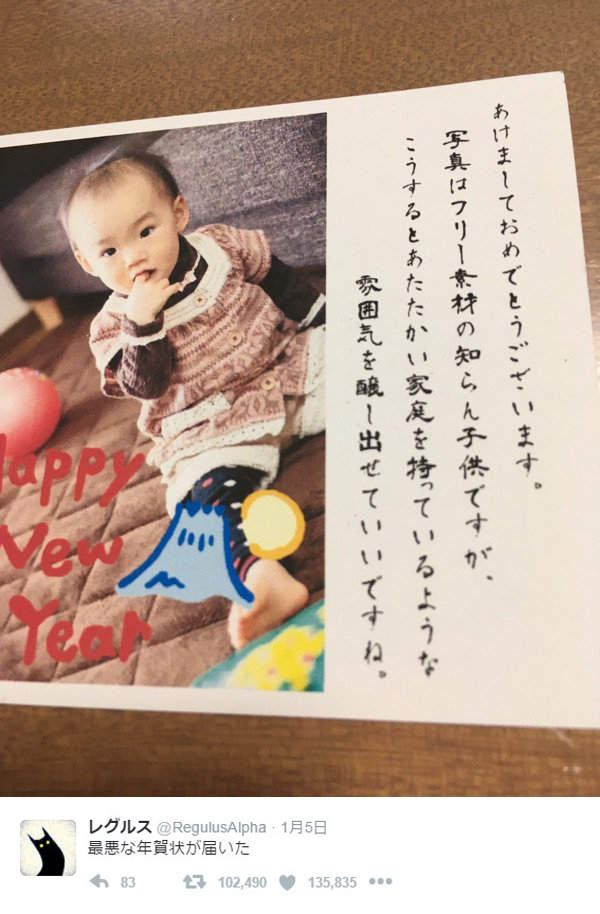 あけましておめでとうございます。
写真はフリー素材の知らん子供ですが、
こうするとあたたかい家庭を持っているような
雰囲気を醸し出せていいですね。
Happy
New
Year
レグルス @RegulusAlpha · 1月5日
最悪な年賀状が届いた
83 102,490 135,835